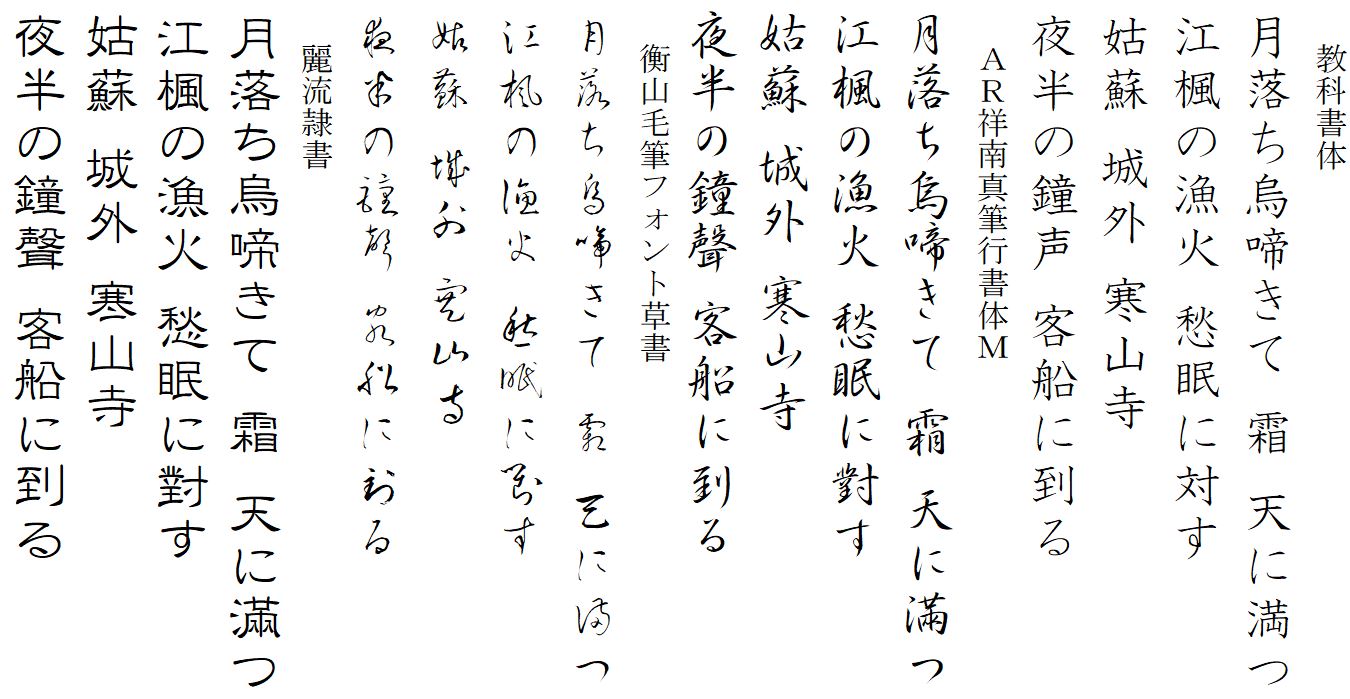 教科書体
月落ち烏啼きて 霜 天に満つ
江楓の漁火 愁眠に対す
姑蘇 城外 寒山寺
夜半の鐘声 客船に到る
ＡＲ祥南真筆行書体Ｍ
月落ち烏啼きて 霜 天に満つ
江楓の漁火 愁眠に對す
姑蘇 城外 寒山寺
夜半の鐘聲 客船に到る
衡山毛筆フォント草書
月落ち烏啼きて 霜 天に満つ
江楓の漁火 愁眠に対す
姑蘇 城外 寒山寺
夜半の鐘聲 客船に到る
麗流隷書
月落ち烏啼きて 霜 天に滿つ
江楓の漁火 愁眠に對す
姑蘇 城外 寒山寺
夜半の鐘聲 客船に到る